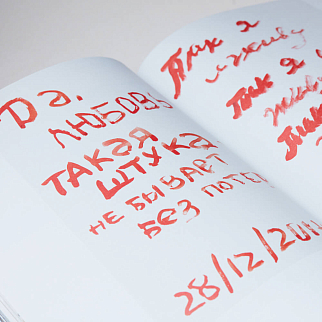 Да.
ЛЮБОВЬ
ТАКАЯ
ШТУКА
НЕ БЫВАЕТ
БЕЗ ПОТЕ
28/12/2011
Так я
живу
Так я
живу
Так